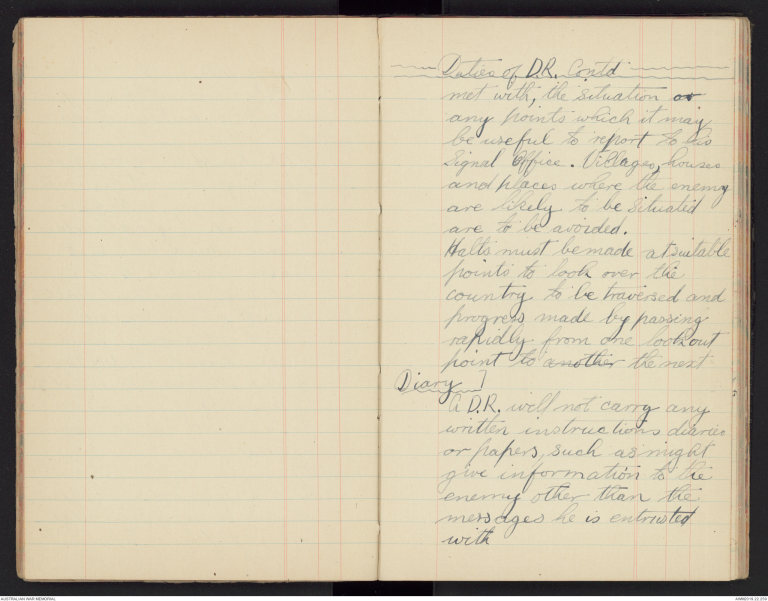 Duties of D.R. Contd
met with, the situation or
any points which it may
be useful to report to his
Signal Office. Villages, houses
and places where the enemy
are likely to be situated
are to be avoided.
Halts must be made at suitable
points to look over the
country to be traversed and
progress made by passing
rapidly from one lookout
point to another the next
Diary ]
A D.R. will not carry any
written instructions diaries
or papers, such as might
give information to the
enemy other than the
messages he is entrusted
with
AUSTRALIAN WAR MEMORIAL